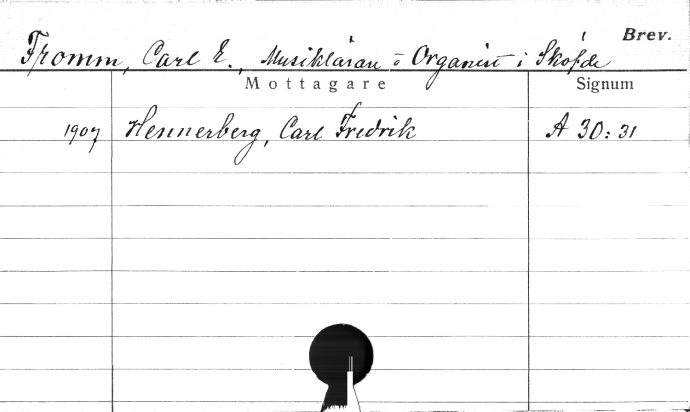 Brev.
Fromm, Carl E., Musiklärare o Organist i Sköfde
Mottagare Signum
1907 Hennerberg, Carl Fredrik A 30:31